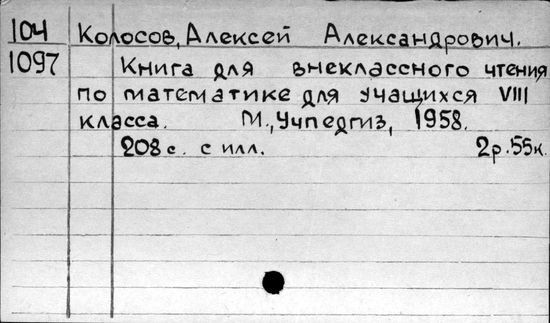 104 Колосов, Алексей Александрович.
1097 Книга для внеклассного чтения
по математике для учащихся VIII
класса. М., Учпедгиз, 1958.
208 с. с илл. 2р.55к.